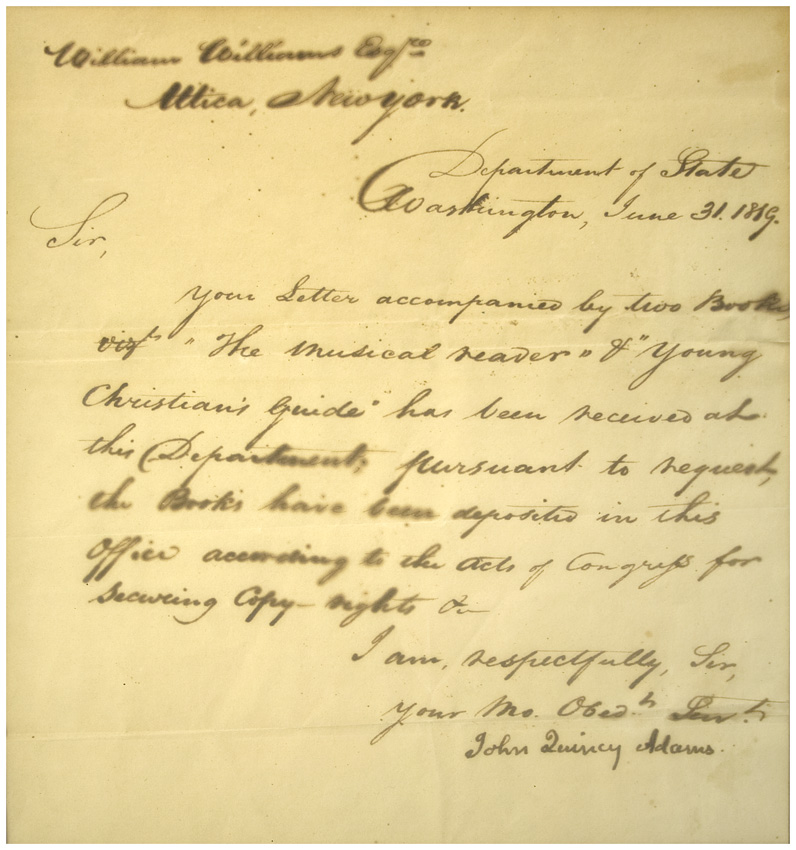 William Williams Esqre
Utica, New york.
Department of State
Washington, June 31. 1819.
Sir,
Your Letter accompanied by two Books,
vizt. "The musical reader" & "Young
Christian's Guide" has been received at
this Department; pursuant to request,
the Books have been deposited in this
Office according to the Acts of Congress for
securing Copy-rights &c
I am, respectfully, Sir,
Your Mo. Obedt. Servt.
John Quincy Adams.